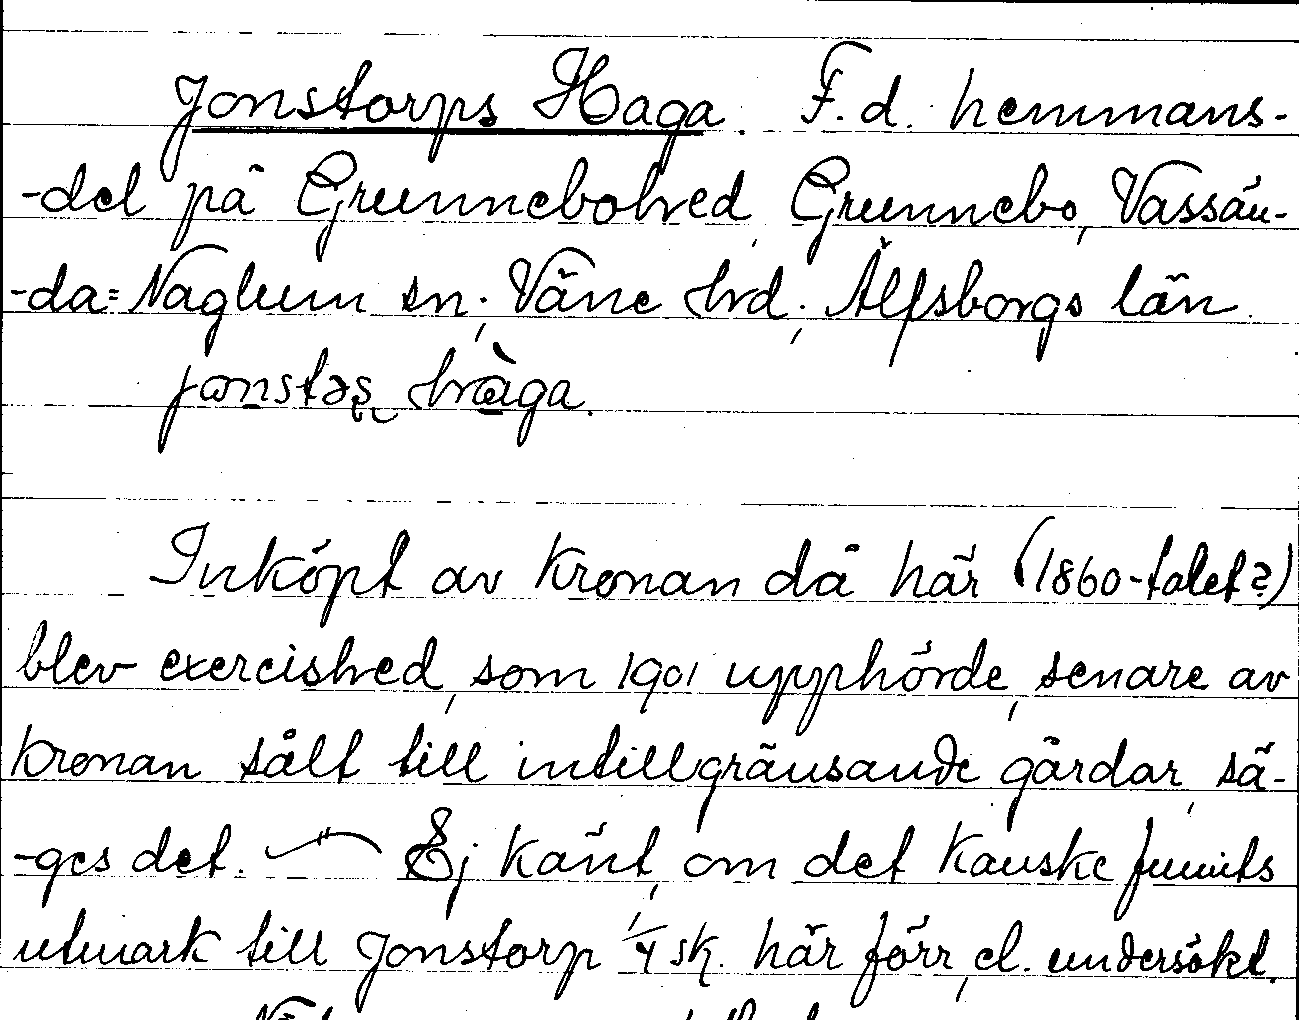 Jonstorps Haga. F.d. hemmans-
-del på Grunnebohed, Grunnebo, Vassän-
-da=Naglum sn; Väne hrd; Älfsborgs län.
Inköpt av Kronan då här (1860-talet?)
blev exercished, som 1901 upphörde, senare av
Kronan sålt till intillgränsande gårdar, sä-
-ges det. — Ej känt, om det kanske funnits
utmark till Jonstorp 1/4 sk. här förr, el. undersökt.